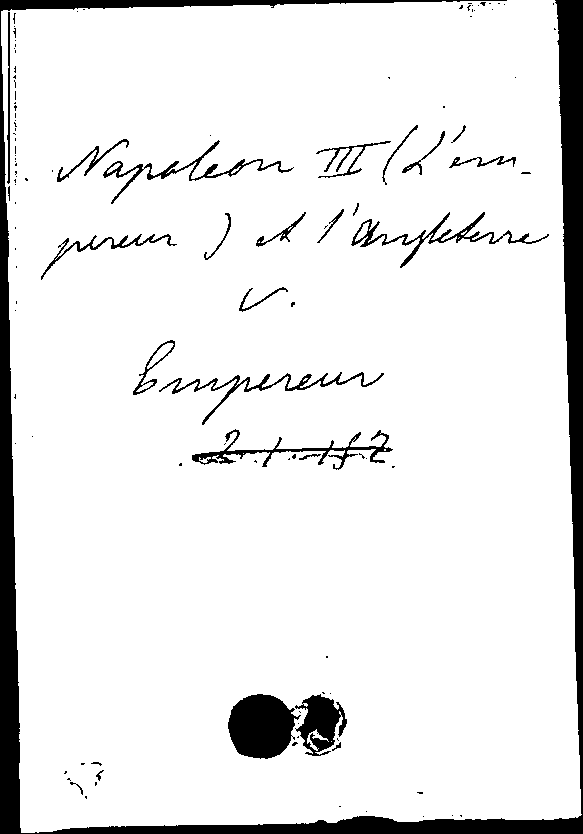 Napoleon III (L'em-
pereur) et l'Angleterre
v.
Empereur